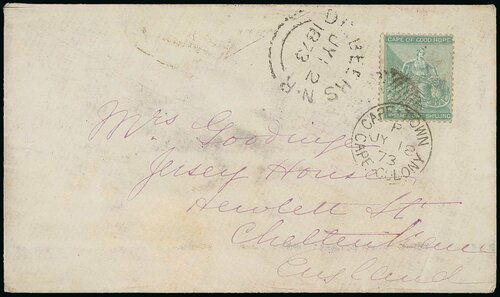 DU BEERS
JY 12
1873
N.R
CAPE OF GOOD HOPE
POSTAGE ONE SHILLING
CAPE TOWN
P
JY 18
73
CAPE COLONY
Mrs Gooding
Jersey House
Hewlett St
Cheltenham
England